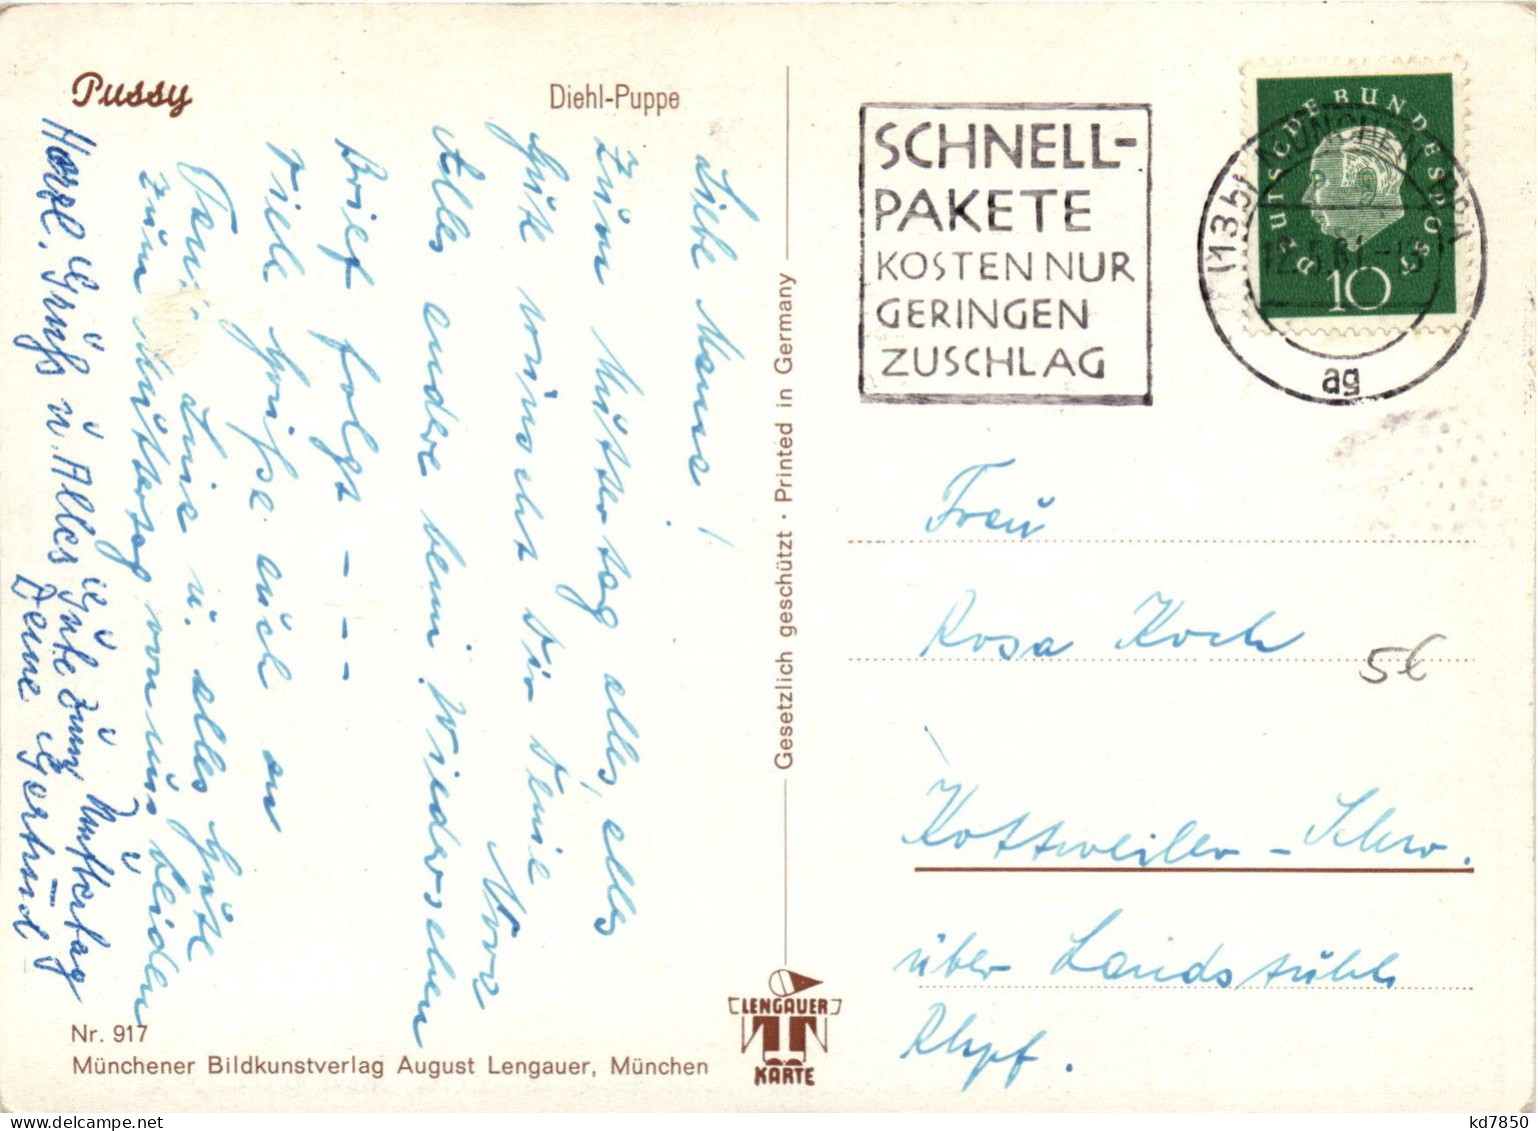 Pussy
Diehl-Puppe
Liebe Mama!
Zum Muttertag alles, alles
Gute wünscht Dir Deine
Alles andere beim Wiedersehen
Brief folgt - - -
Viele Grüße auch an
Tante u. alles Gute
zum Muttertag von uns beiden
Herzl. Grüße u. Alles Gute zum Muttertag
Deine Gertrud
Nr. 917
Münchener Bildkunstverlag August Lengauer, München
Gesetzlich geschützt · Printed in Germany
LENGAUER
KARTE
SCHNELL-
PAKETE
KOSTEN NUR
GERINGEN
ZUSCHLAG
DEUTSCHE BUNDESPOST
10
(13b) MÜNCHEN
12.5.61.-18
ag
Frau
Rosa Koch
5€
Kottweiler-Schw.
über Landstuhl
Rhpf.
kd7850